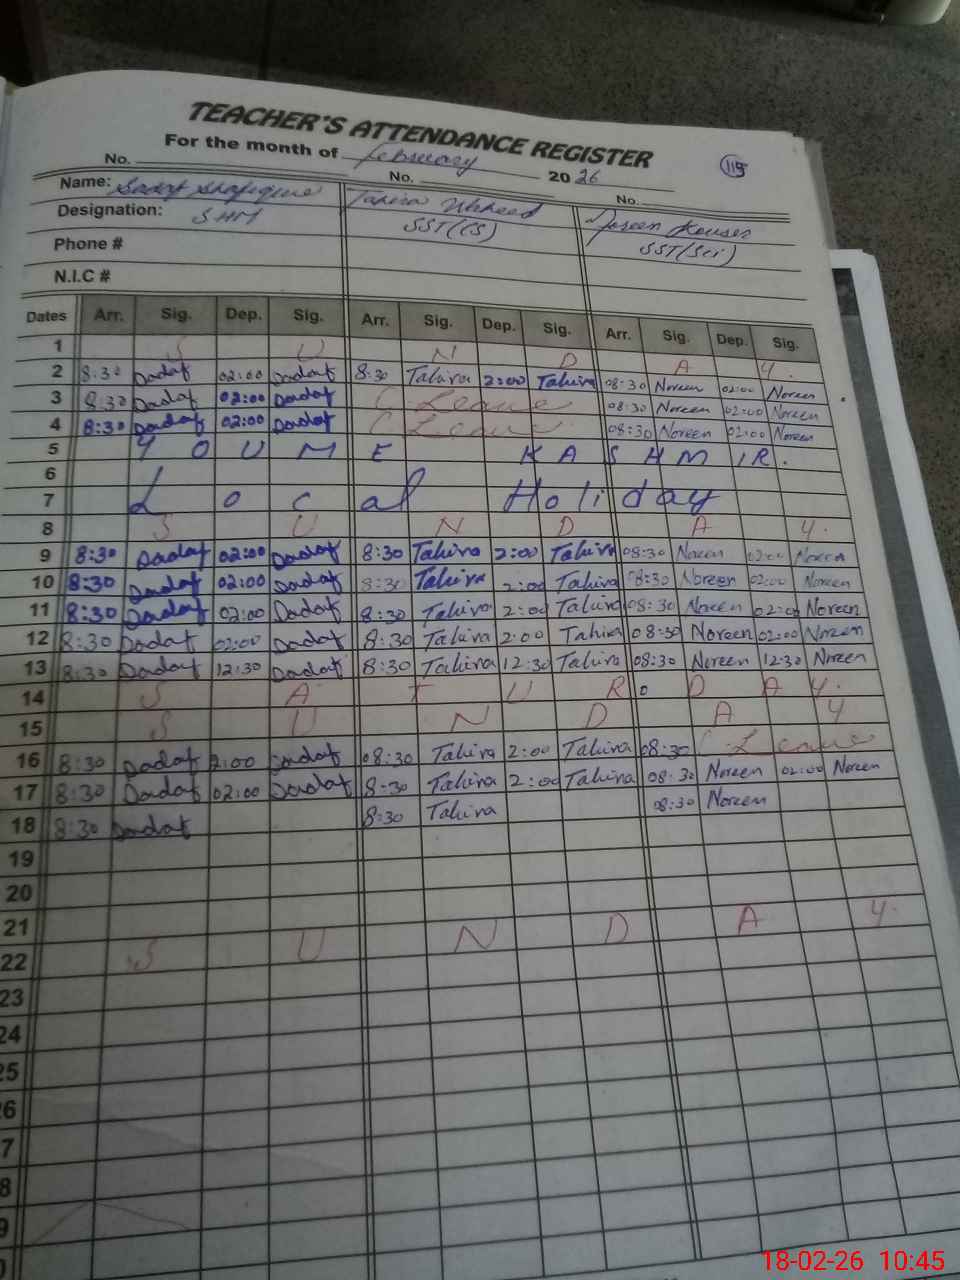 TEACHER'S ATTENDANCE REGISTER
For the month of February 2026
115
No. No. No.
Name: Tahira Waheed Noreen Kouser
Designation: SHM SST(CS) SST(Sci)
Phone #
N.I.C #
Dates Arr. Sig. Dep. Sig. Arr. Sig. Dep. Sig. Arr. Sig. Dep. Sig.
1 S U N D A Y.
2 8:30 02:00 8:30 Tahira 2:00 Tahira 08:30 Noreen 02:00 Noreen
3 8:30 02:00 C Leave 08:30 Noreen 02:00 Noreen
4 8:30 02:00 C Leave 08:30 Noreen 02:00 Noreen
5 Y O U M E K A S H M I R.
6
7 L o c al Holiday
8 S U N D A Y.
9 8:30 02:00 8:30 Tahira 2:00 Tahira 08:30 Noreen 02:00 Noreen
10 8:30 02:00 8:30 Tahira 2:00 Tahira 08:30 Noreen 02:00 Noreen
11 8:30 02:00 8:30 Tahira 2:00 Tahira 08:30 Noreen 02:00 Noreen
12 8:30 02:00 8:30 Tahira 2:00 Tahira 08:30 Noreen 02:00 Noreen
13 8:30 12:30 8:30 Tahira 12:30 Tahira 08:30 Noreen 12:30 Noreen
14 S A T U R D A Y.
15 S U N D A Y
16 8:30 2:00 08:30 Tahira 2:00 Tahira 08:30 C Leave
17 8:30 02:00 8:30 Tahira 2:00 Tahira 08:30 Noreen 02:00 Noreen
18 8:30 8:30 Tahira 08:30 Noreen
19
20
21
22 S U N D A Y.
23
24
25
26
7
8
9
18-02-26 10:45